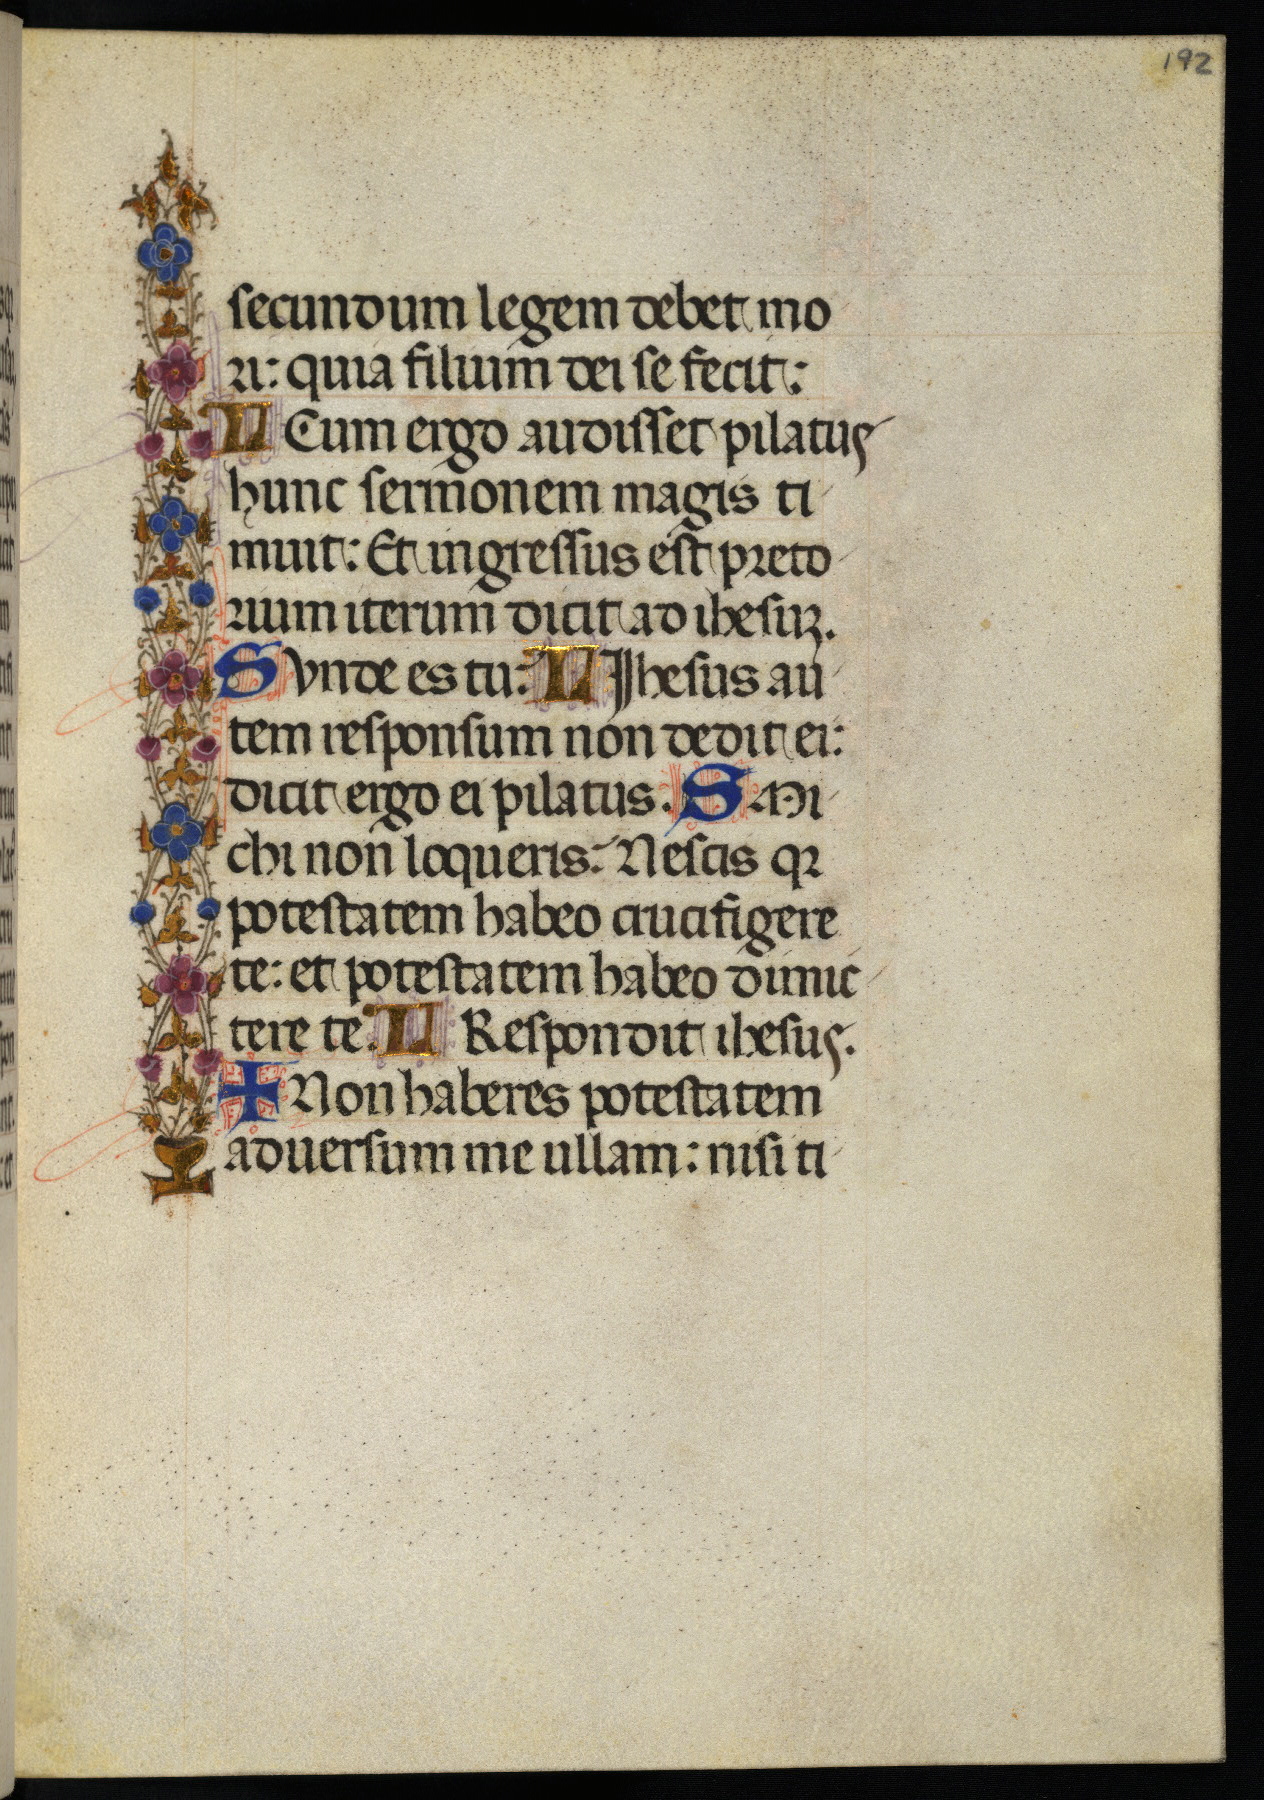 192
secundum legem debet mo
ri: quia filium dei se fecit:
L Cum ergo audisset pilatus
hunc sermonem magis ti
muit: Et ingressus est preto
rium iterum dicit ad ihesuꝫ.
S Vnde es tu: L Jhesus au
tem responsum non dedit ei:
dicit ergo ei pilatus. S Mi
chi non loqueris: Nescis qꝛ
potestatem habeo crucifigere
te: et potestatem habeo dimic
tere te. L Respondit ihesus.
+ Non haberes potestatem
aduersum me ullam: nisi ti